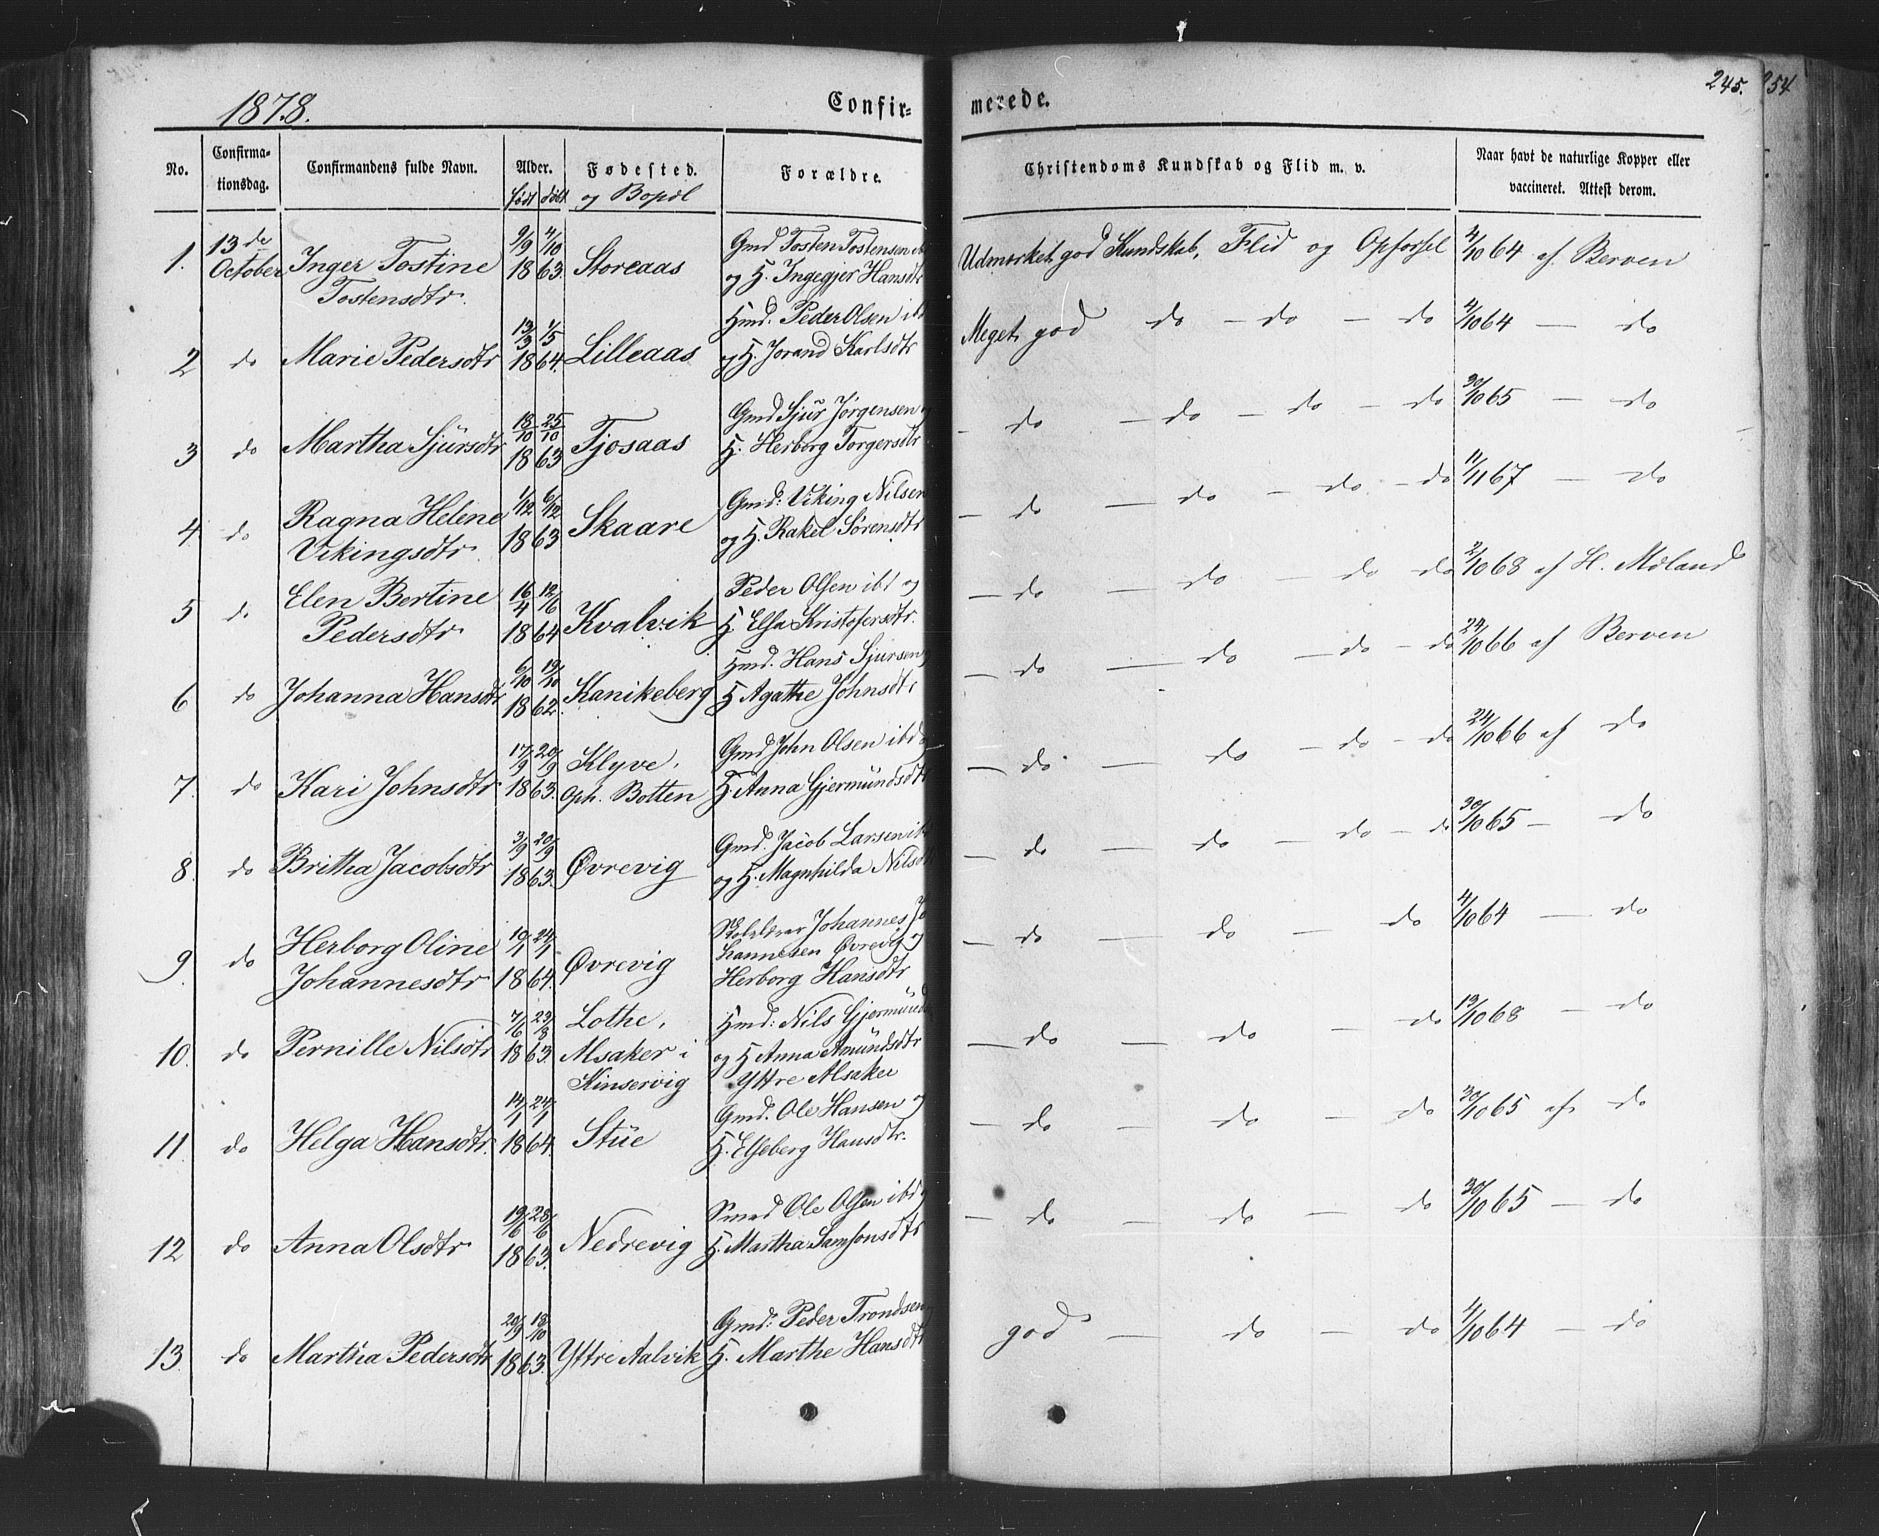 1878.
Confirmerede.
245.
254
No.
Confirmationsdag.
Confirmandens fulde Navn.
Alder.
født døbt
Fødested.
og Bopæl
Forældre.
Christendoms Kundskab og Flid m. v.
Naar havt de naturlige Kopper eller
vaccineret. Attest derom.
1. 13de October Inger Tostine Tostensdtr. 9/9 4/10 1863. Storeaas Gmd Tosten Tostensen ibd og H. Ingegjer Hansdtr Udmærket god Kundskab, Flid og Opførsel 4/10 64 af Berven
2 do Marie Pedersdtr 13/3 1/5 1864. Lilleaas Hmd. Peder Olsen ibd og H. Jorand Karlsdtr Meget god do - do - do 4/10 64 — do
3 do Martha Sjursdtr 13/10 25/10 1863 Tjosaas Gmd Sjur Jørgensen og H. Herborg Torgersdtr - do - do - do - do 30/10 65 - do
4. do Ragna Helene Vikingsdtr. 1/12 6/12 1863 Skaare Gmd: Viking Nilsen og H. Rakel Sørensdtr - do — do - do - do 11/11 67 - do
5 do Elen Bertine Pedersdtr. 16/4 12/6 1864 Kvalvik Peder Olsen ibd og H. Elsa Kristofersdtr. - do — do - do do 2/10 68 af H. Mæland
6 do Johanna Hansdtr 6/10 19/10 1862. Kanikeberg Hmd. Hans Sjursen og H Agathe Johnsdtr - do — do - do - do 24/10 66 af Berven
7. do Kari Johnsdtr 17/9 20/9 1863. Klyve, Oph. Botten Gmd John Olsen ibd og H. Anna Gjermundsdtr - do — do - do - do 24/10 66 af do
8. do Britha Jacobsdtr 3/9 20/9 1863. Øvrevig Gmd. Jacob Larsen ibd og H. Magnhilda Nilsdtr - do — do - do - do 30/10 65 - do
9. do Herborg Oline Johannesdtr 19/1 24/1 1864. Øvrevig Johannes Johannesen Øvrevig og Herborg Hansdtr - do — do - do 4/10 64 — do
10. do Pernille Nilsdtr 7/6 23/8 1863. Lothe, Alsaker i Kinservig Hmd: Nils Gjermunds og H Anna Amundsdtr Yttre Alsaker — do — do — do 19/10 68 - do
11. do Helga Hansdtr. 14/1 24/1 1864. Stue Gmd. Ole Hansen og H. Elseberg Hansdtr. - do — do — do 30/10 65 af do
12 do Anna Olsdtr 19/6 28/6 1863. Nedrevig Smed Ole Olsen ibd og H. Martha Samsonsdtr - do — do - do 30/10 65 — do
13. do Martha Pedersdtr 20/9 18/10 1863. Yttre Aalvik Gmd: Peder Trondsen H. Marthe Hansdtr god — do - do 4/10 64 — do